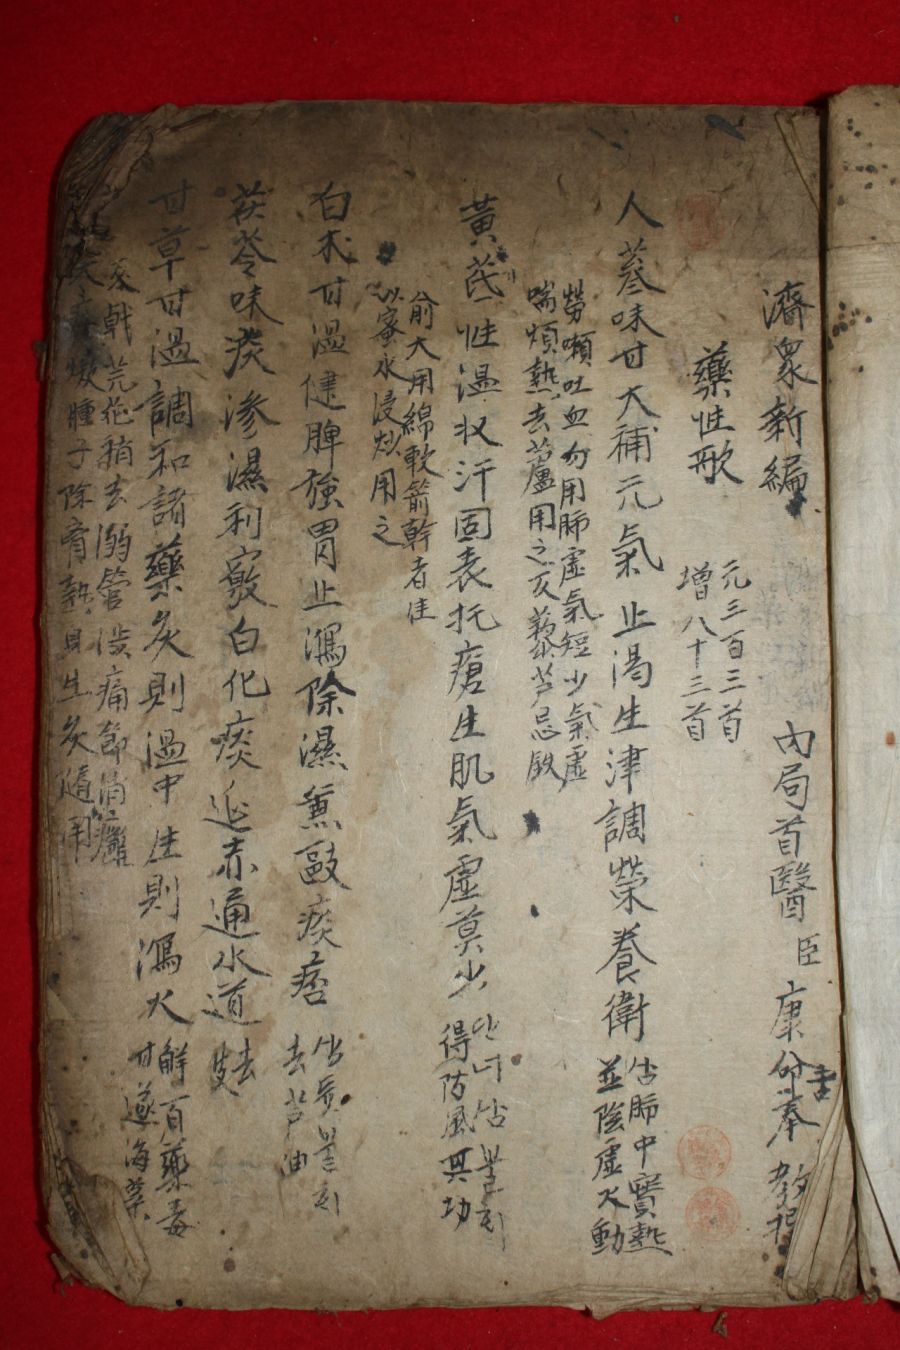 濟衆新編 內局首醫 臣 康命奉 教撰
藥性歌 元三百三首
增八十三首
人蔘味甘大補元氣止渴生津調榮養衛 肺中實熱
並陰虛火動
勞嗽吐血勿用肺虛氣短少氣虛
喘煩熱去蘆用之反藜芦忌鉄
黃芪性溫收汗固表托瘡生肌氣虛莫少
得防風其功
俞大用綿軟箭幹者佳
以蜜水浸炒用之
白朮甘溫健脾強胃止瀉除濕兼敺痰痞
去芦油
茯苓味淡滲濕利竅白化痰涎赤通水道 去皮
甘草甘溫調和諸藥灸則溫中生則瀉火 解百藥毒
甘遂海藻
戟芫花稍去溺管澁痛節消癰
腫子除胷熱身生灸隨用